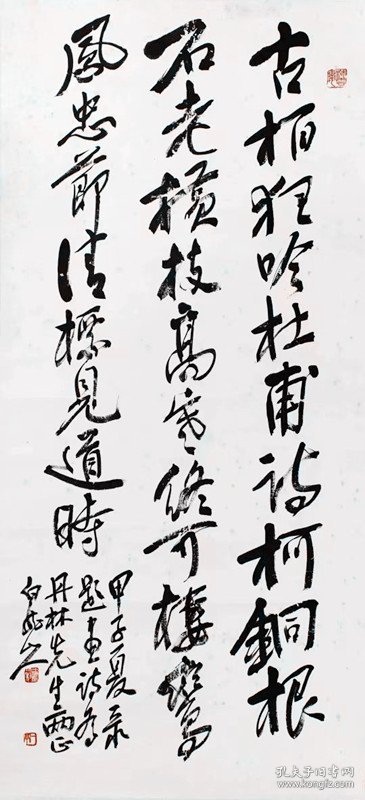 古柏狂吟杜甫诗柯銅根
石老横枝高寒終可棲鸞
鳳忠節清標見道時
甲子夏录
题画诗为
丹林先生两正
孔夫子旧书网
www.kongfz.com